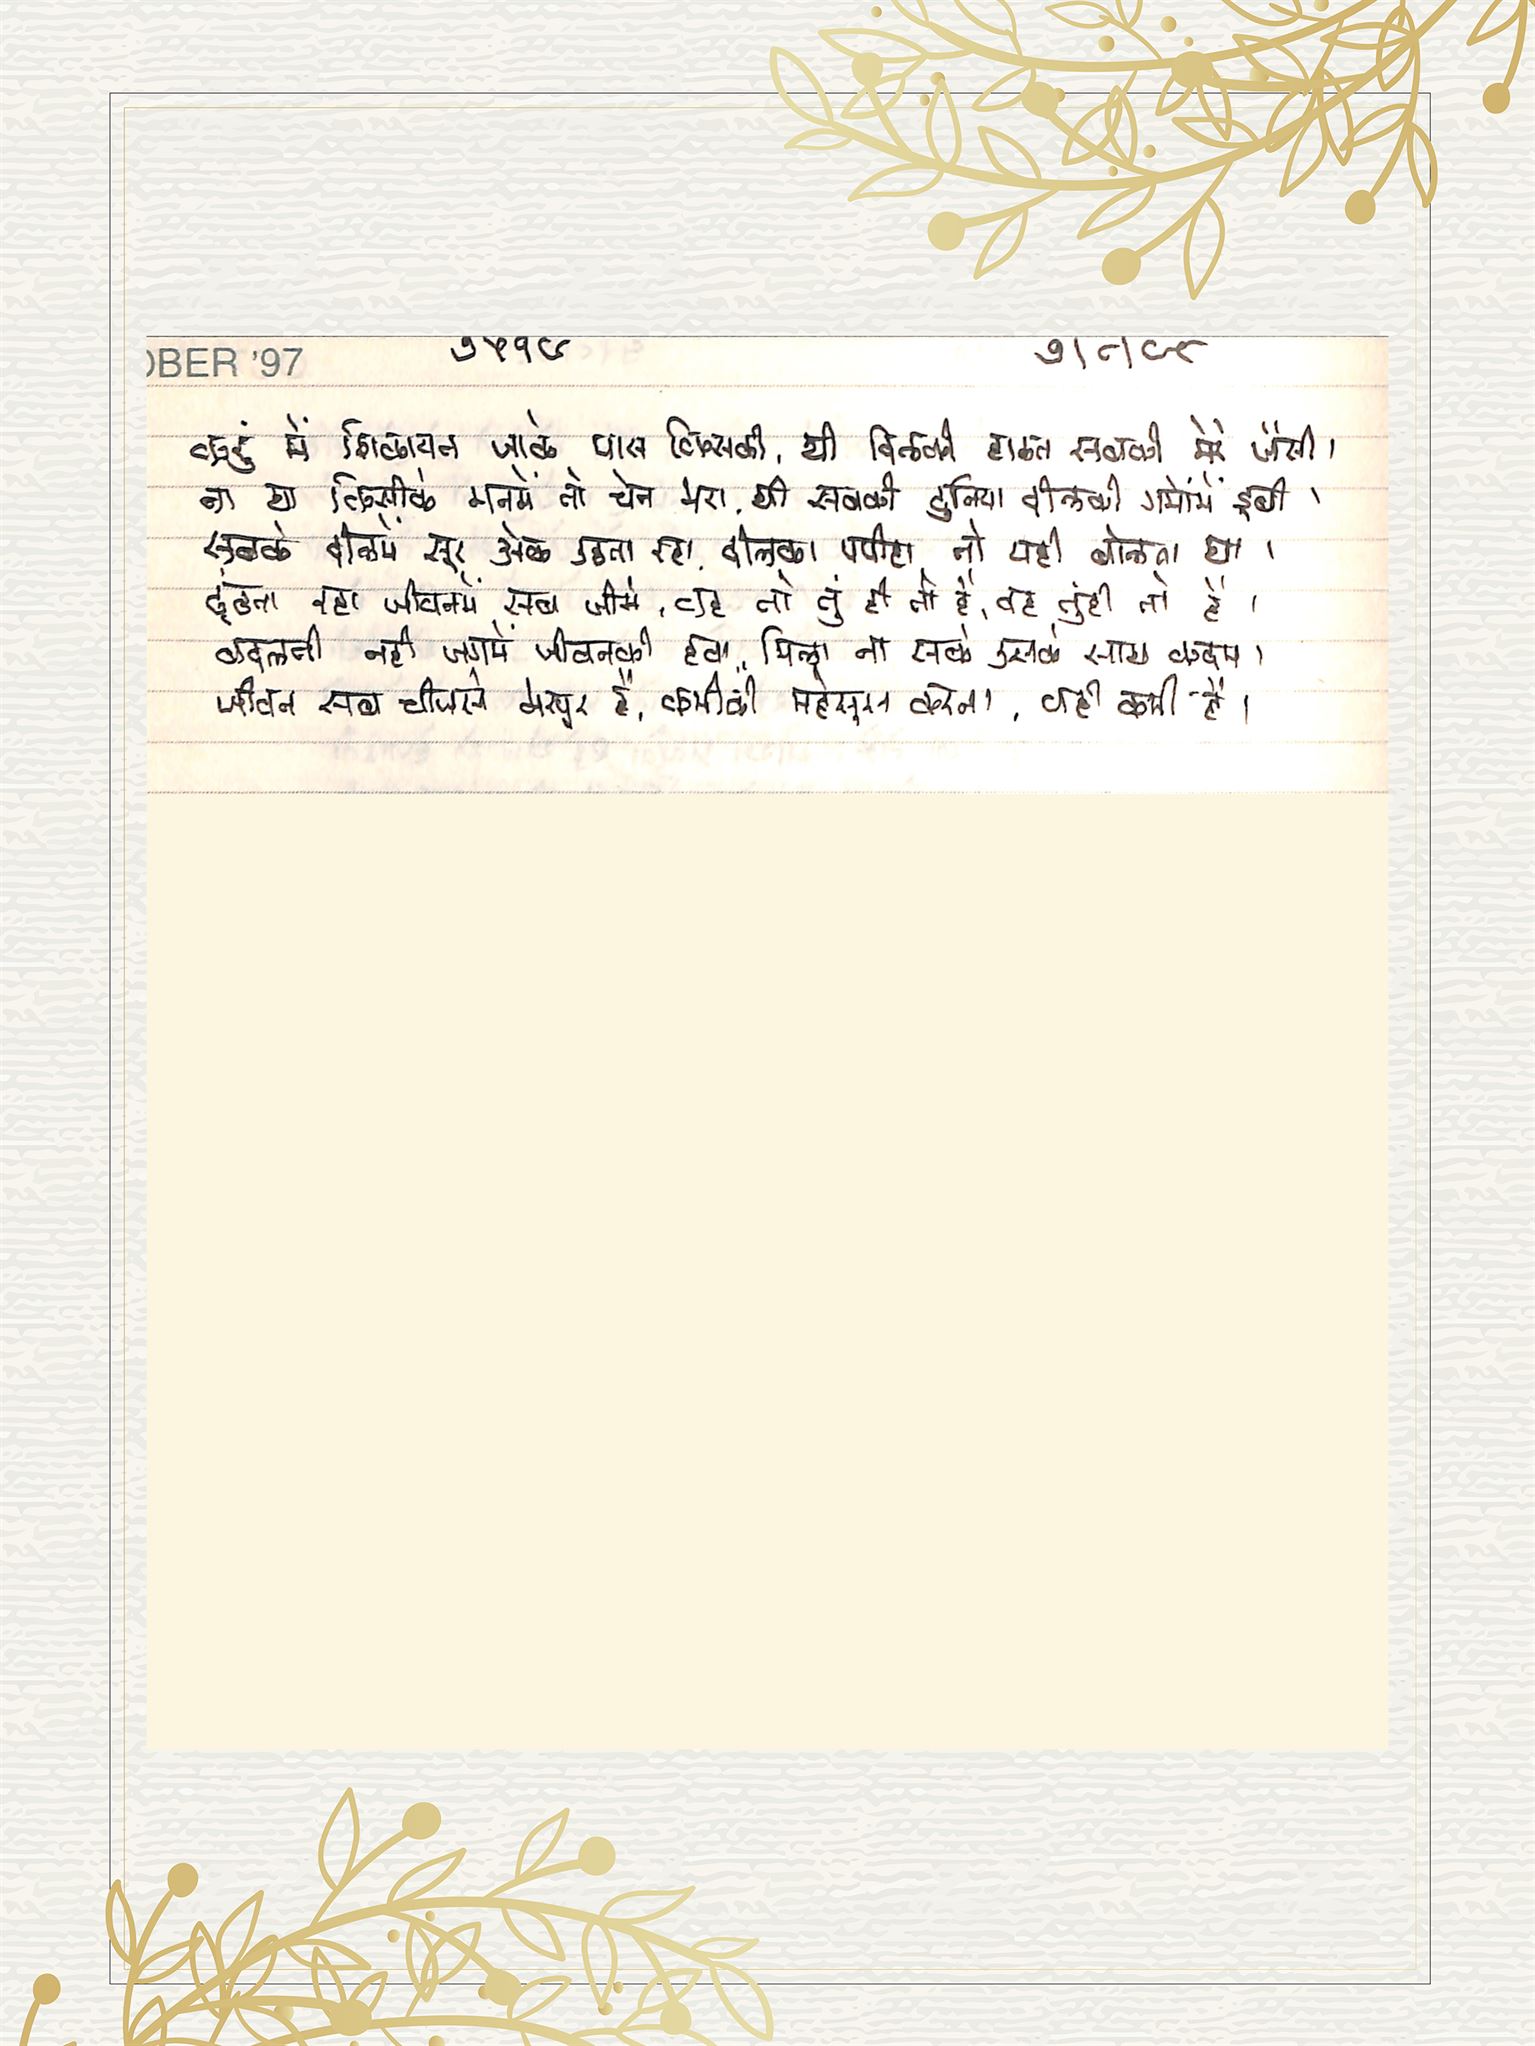 OBER '97 ७५१८ ७/८/९८
कहुं में शिकायत जाके पास किसकी, थी दिलकी हालत सबकी मेरे जैसी।
ना था किसीके मनमें तो चेन मेरा, थी सबकी दुनिया दीलकी गमोंमें डूबी।
सबके दीलमें सूर अेक उठता रहा, दीलका पपीहा तो यही बोलता था।
ढूंढता रहा जीवनमें सब जीसे, वह तो तुं ही तो है, वह तुंही तो है।
बदलती नही जगमें जीवनकी हवा, मिला ना सके उसके साथ कदम।
जीवन सब चीजसे भरपुर है, कमीकी महेसूस करना, वही कमी है।